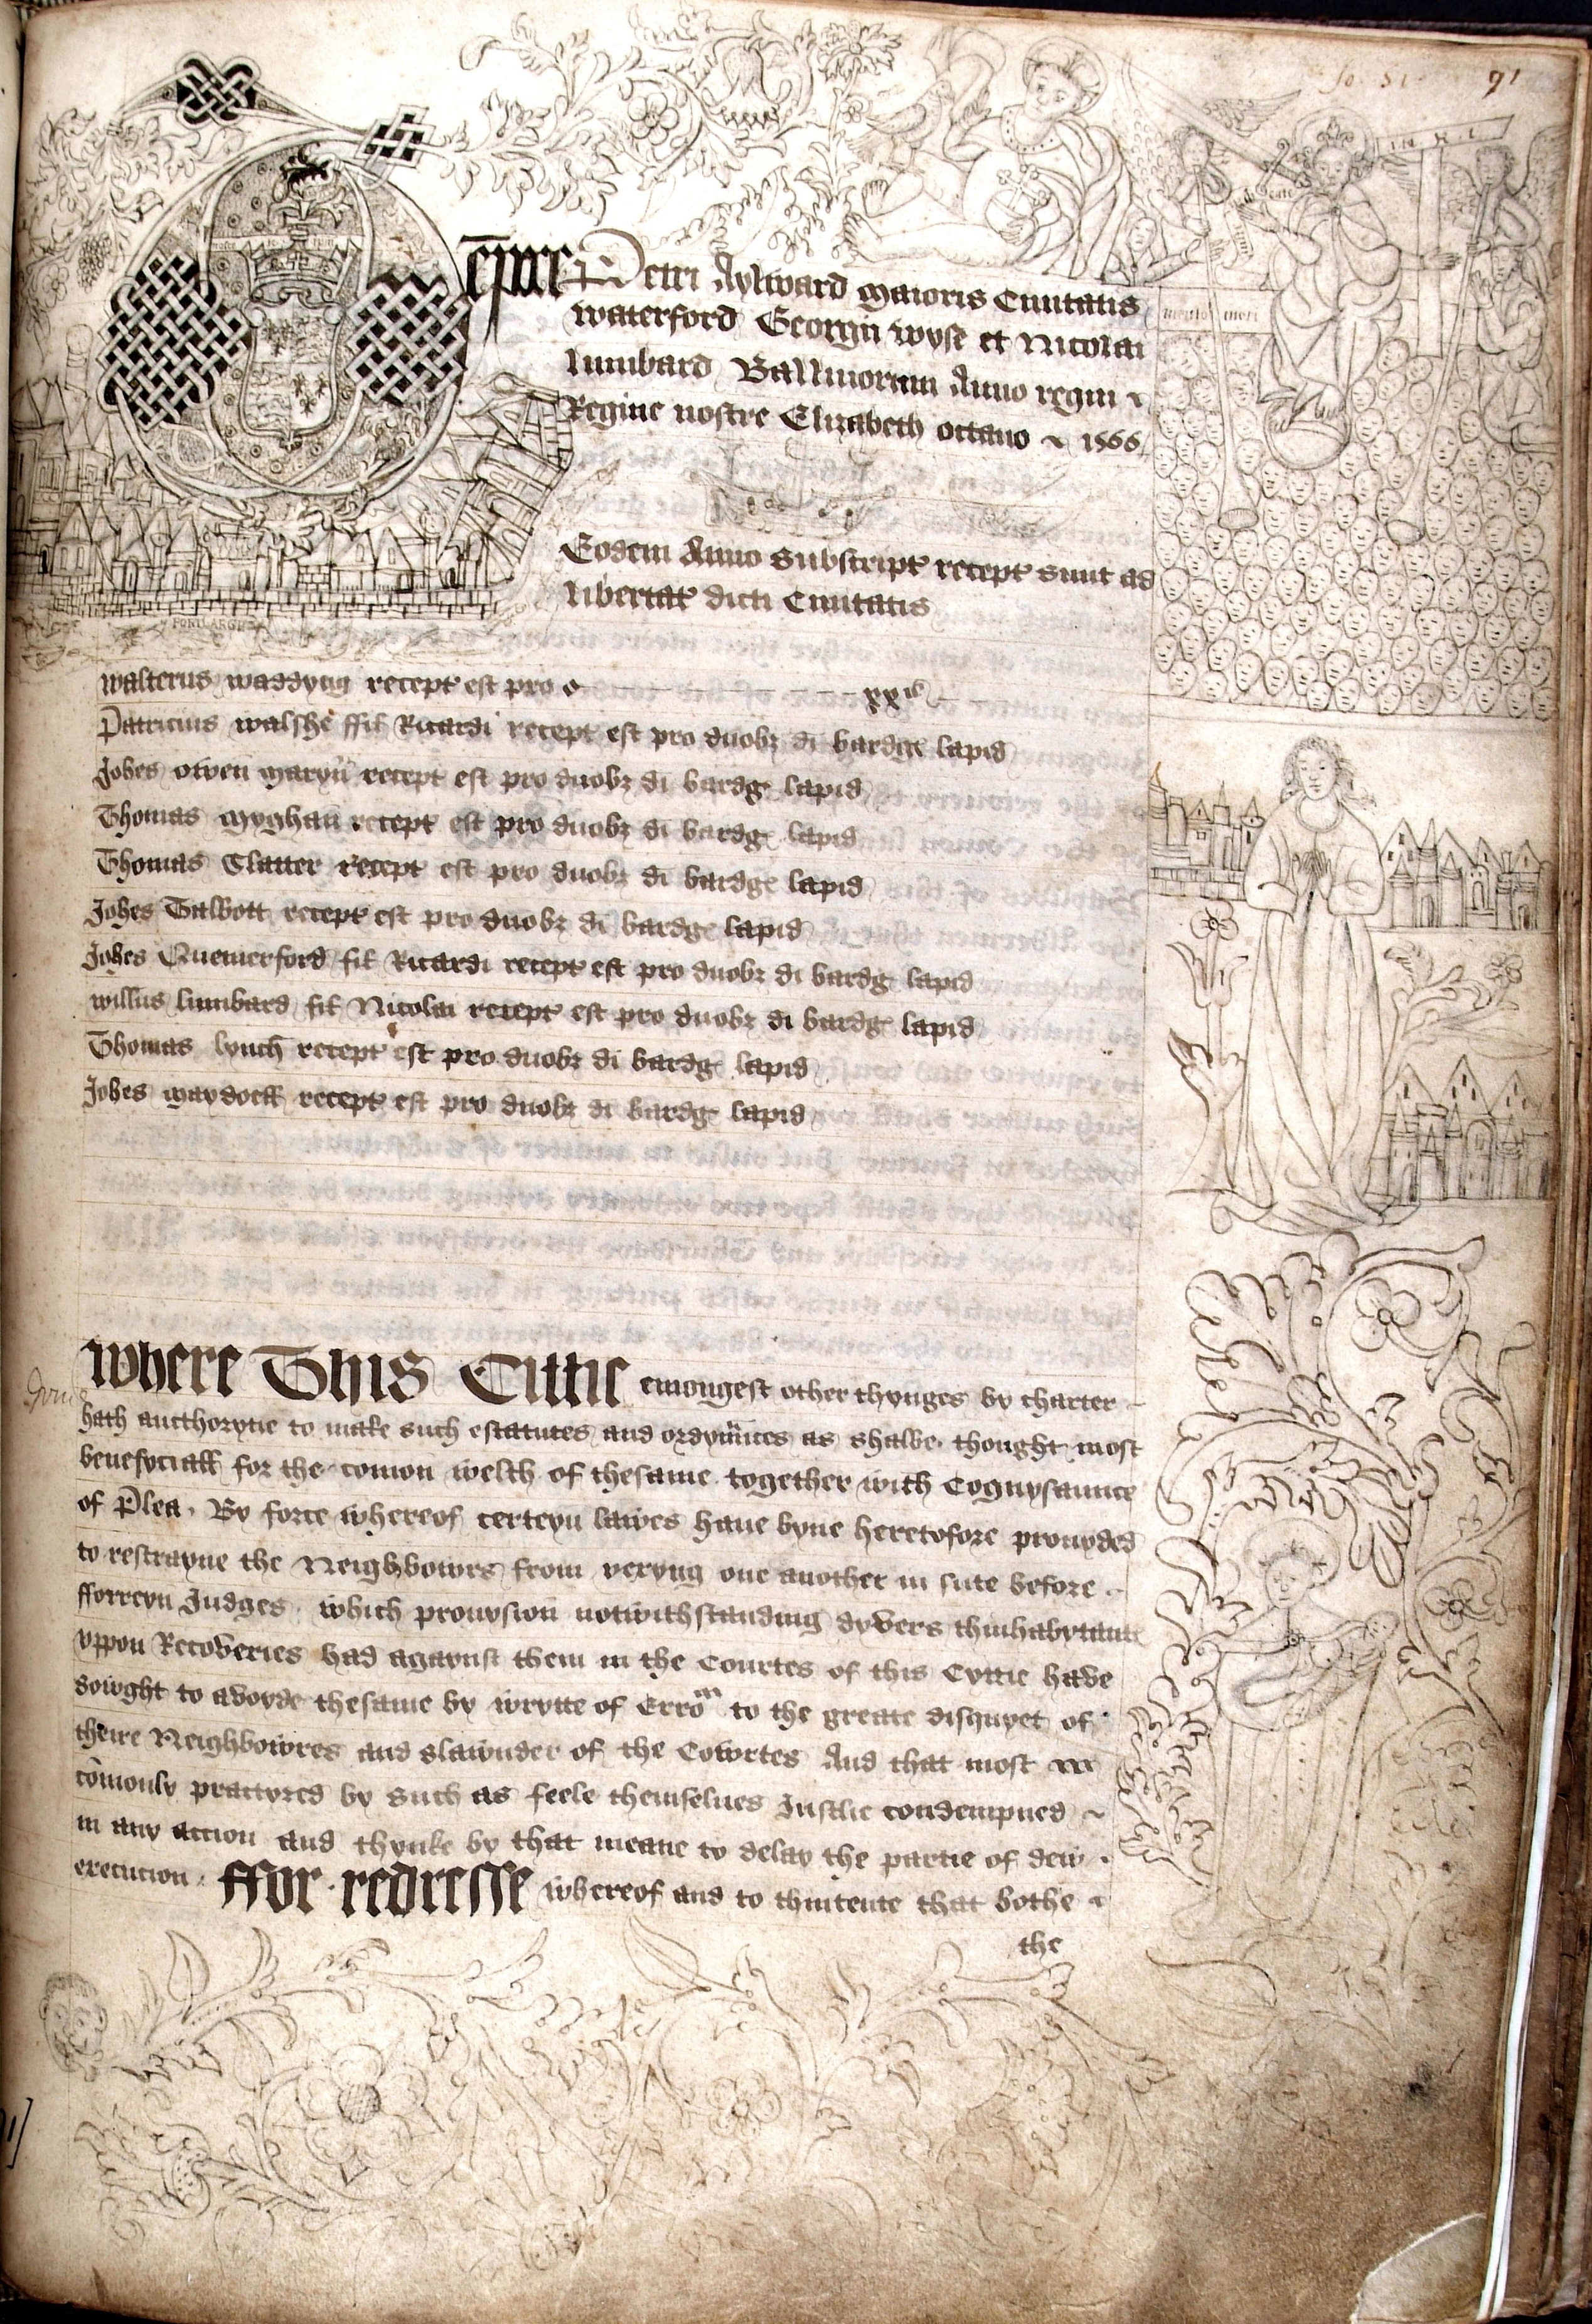 fo. 51 91
INRI
Tempore Petri Aylward maioris Civitatis
waterford Georgii wyse et Nicolai
lumbard Ballivorum Anno regni
Regine nostre Elizabeth octavo 1566
memento mori
Eodem Anno Subscript recept sunt ad
libertat dicti Civitatis
walterus waddyng recept est pro xxs
Patricius walshe ffil Ricardi recept est pro duobz di bardge lapid
Johes owen recept est pro duobz di bardge lapid
Thomas myghan recept est pro duobz di bardge lapid
Thomas Clatter recept est pro duobz di bardge lapid
Johes Talbott recept est pro duobz di bardge lapid
Johes Quemerford fil Ricardi recept est pro duobz di bardge lapid
willus lumbard fil Nicolai recept est pro duobz di bardge lapid
Thomas lynch recept est pro duobz di bardge lapid
Johes maydock recept est pro duobz di bardge lapid
Where This Cittie emongest other thynges by charter
hath aucthorytie to make such estatutes and ordynnces as shalbe thought most
benefyciall for the comon welth of thesame together with Cognysaunce
of Plea. By force whereof certeyn lawes have byne heretofore provyded
to restrayne the Neighbowrs from vexyng one another in sute before
fforreyn Judges, which provysion notwithstanding dyvers thinhabytante
uppon Recoveries had agaynst them in the Courtes of this Cyttie have
sowght to avoyde thesame by wrytte of Error to the greate disquyet of
theire Neighbowres and slawnder of the Cowrtes And that most
comonly practyced by such as feele themselves Justlie condempned
in any accion and thynke by that meane to delay the partie of dew
execucion. ffor redresse whereof and to thintente that bothe
the